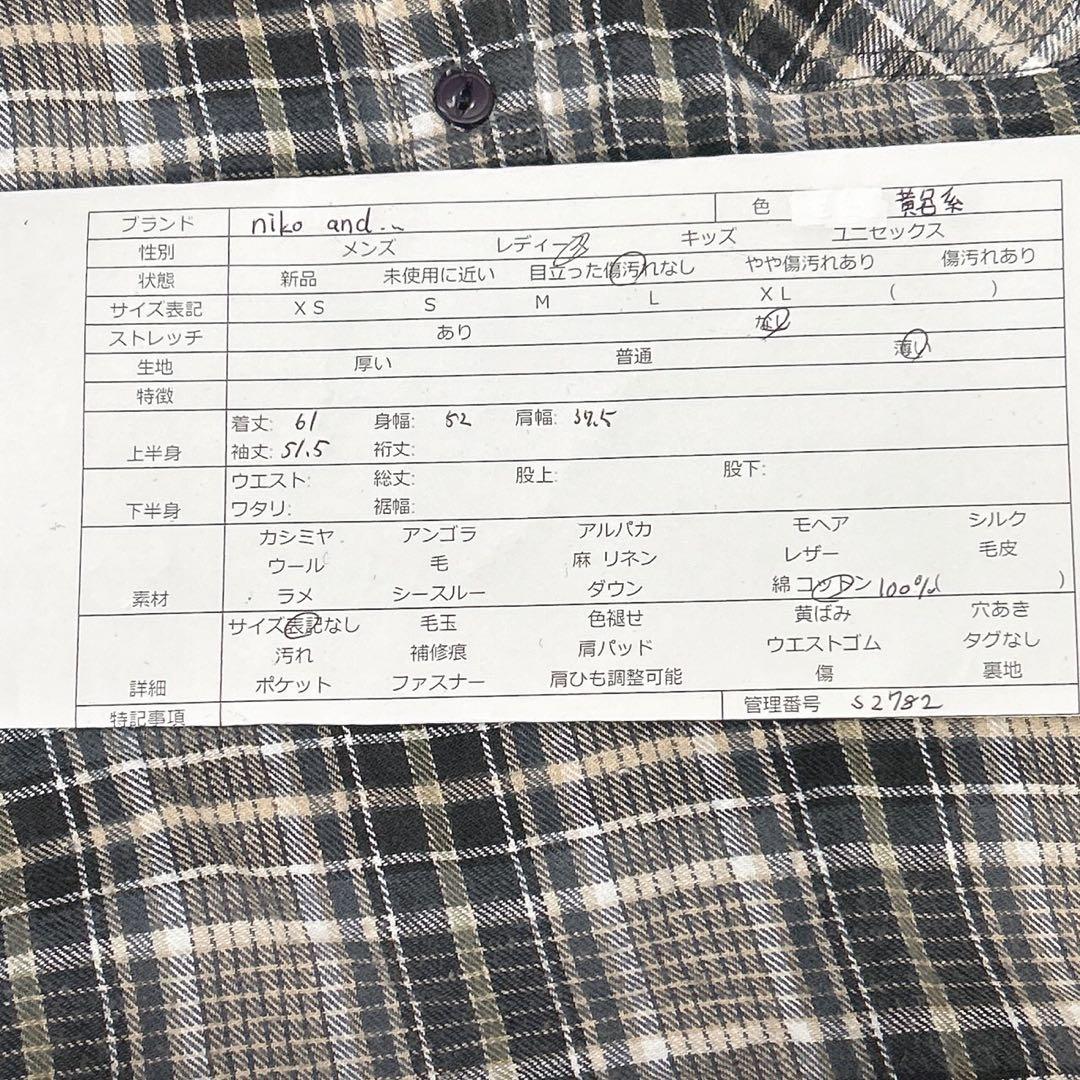 ブランド niko and... 色 黄色系
性別 メンズ レディース キッズ ユニセックス
状態 新品 未使用に近い 目立った傷汚れなし やや傷汚れあり 傷汚れあり
サイズ表記 XS S M L XL ( )
ストレッチ あり なし
生地 厚い 普通 薄い
特徴
上半身 着丈: 61 身幅: 52 肩幅: 37.5
袖丈: 51.5 裄丈:
下半身 ウエスト: 総丈: 股上: 股下:
ワタリ: 裾幅:
素材 カシミヤ アンゴラ アルパカ モヘア シルク
ウール 毛 麻 リネン レザー 毛皮
ラメ シースルー ダウン 綿 コットン 100% )
詳細 サイズ表記なし 毛玉 色褪せ 黄ばみ 穴あき
汚れ 補修痕 肩パッド ウエストゴム タグなし
ポケット ファスナー 肩ひも調整可能 傷 裏地
特記事項 管理番号 S2782